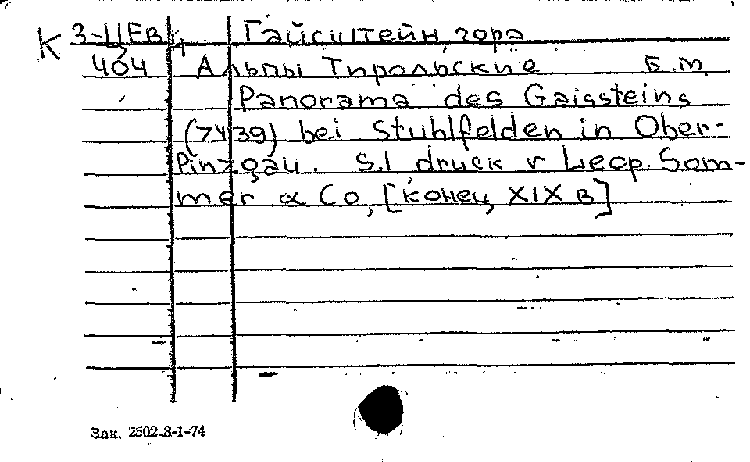 К 3-ЦЕВ 4 Гайсштейн, гора
464 Альпы Тирольские Б.м.
Panorama des Gaissteins
(7439) bei Stuhlfelden in Ober-
Pinzgau. S.l, druck v Leop. Som-
mer & Co, [конец XIX в]
Зак. 2602.3-1-74